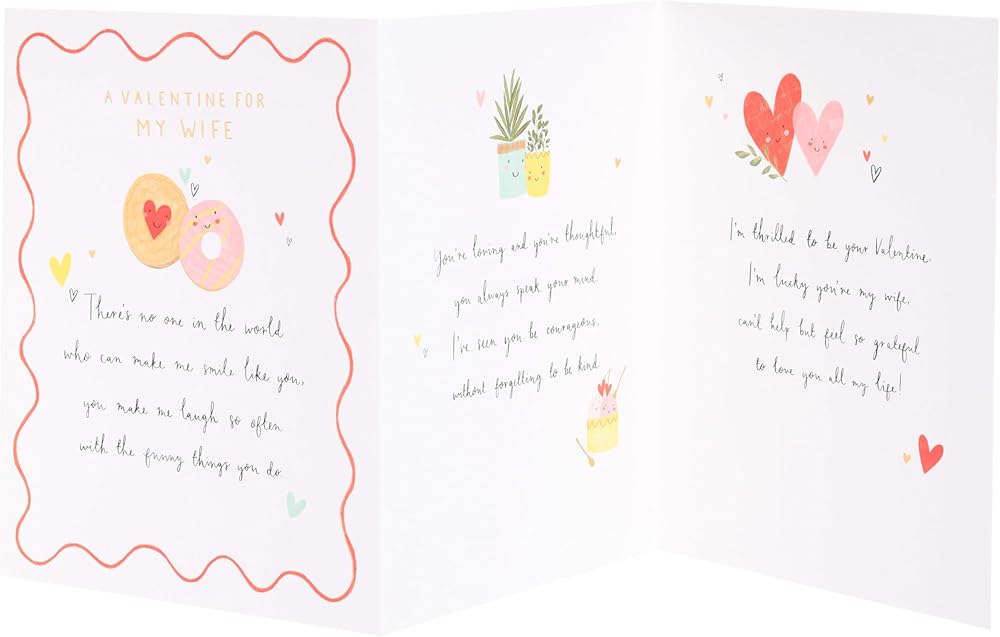 A VALENTINE FOR
MY WIFE
There's no one in the world
who can make me smile like you,
you make me laugh so often
with the funny things you do.
You're loving and you're thoughtful,
you always speak your mind.
I've seen you be courageous,
without forgetting to be kind.
I'm thrilled to be your Valentine,
I'm lucky you're my wife,
can't help but feel so grateful
to love you all my life!